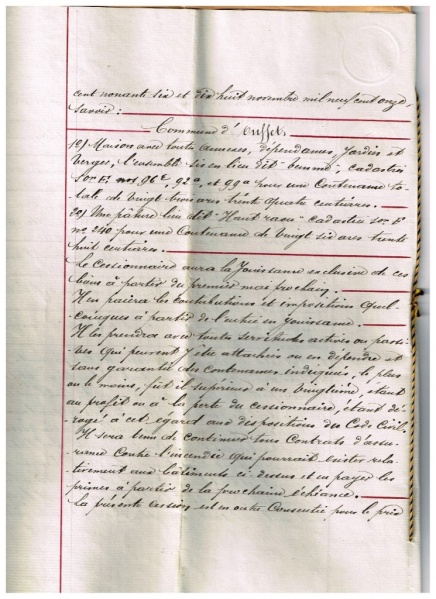 cent nonante six et dix huit novembre mil neuf cent onze,
savoir :
Commune d'Ouffet.
1o) Maison avec toutes annexes, dépendances, Jardin et
Verger, l'ensemble sis en lieu dit "
son E nos 96c, 92a, et 99a pour une Contenance to-
tale de vingt trois ares trente quatre centiares.
2o) Une pâture lieu dit "Haut " cadastrée son E
no 240 pour une Contenance de vingt six ares trente
huit centiares.
Le Cessionnaire aura la Jouissance exclusive de ces
biens à partir du premier mai prochain.
Il en paiera les Contributions et impositions quel-
conques à partir de l'entrée en jouissance.
Il les prendra avec toutes servitudes actives ou passi-
ves qui peuvent y être attachées ou en dépendre et
sans garantie des contenances indiquées, le plus
ou le moins, fut il supérieur à un vingtième, étant
au profit ou à la perte du cessionnaire, étant dé-
rogé à cet égard aux dispositions du Code Civil.
Il sera tenu de continuer tous Contrats d'assu-
rance Contre l'incendie qui pourrait exister rela-
tivement aux bâtiments ci-dessus et en payer les
primes à partir de la prochaine échéance.
La présente Cession est en outre Consentie pour le prix